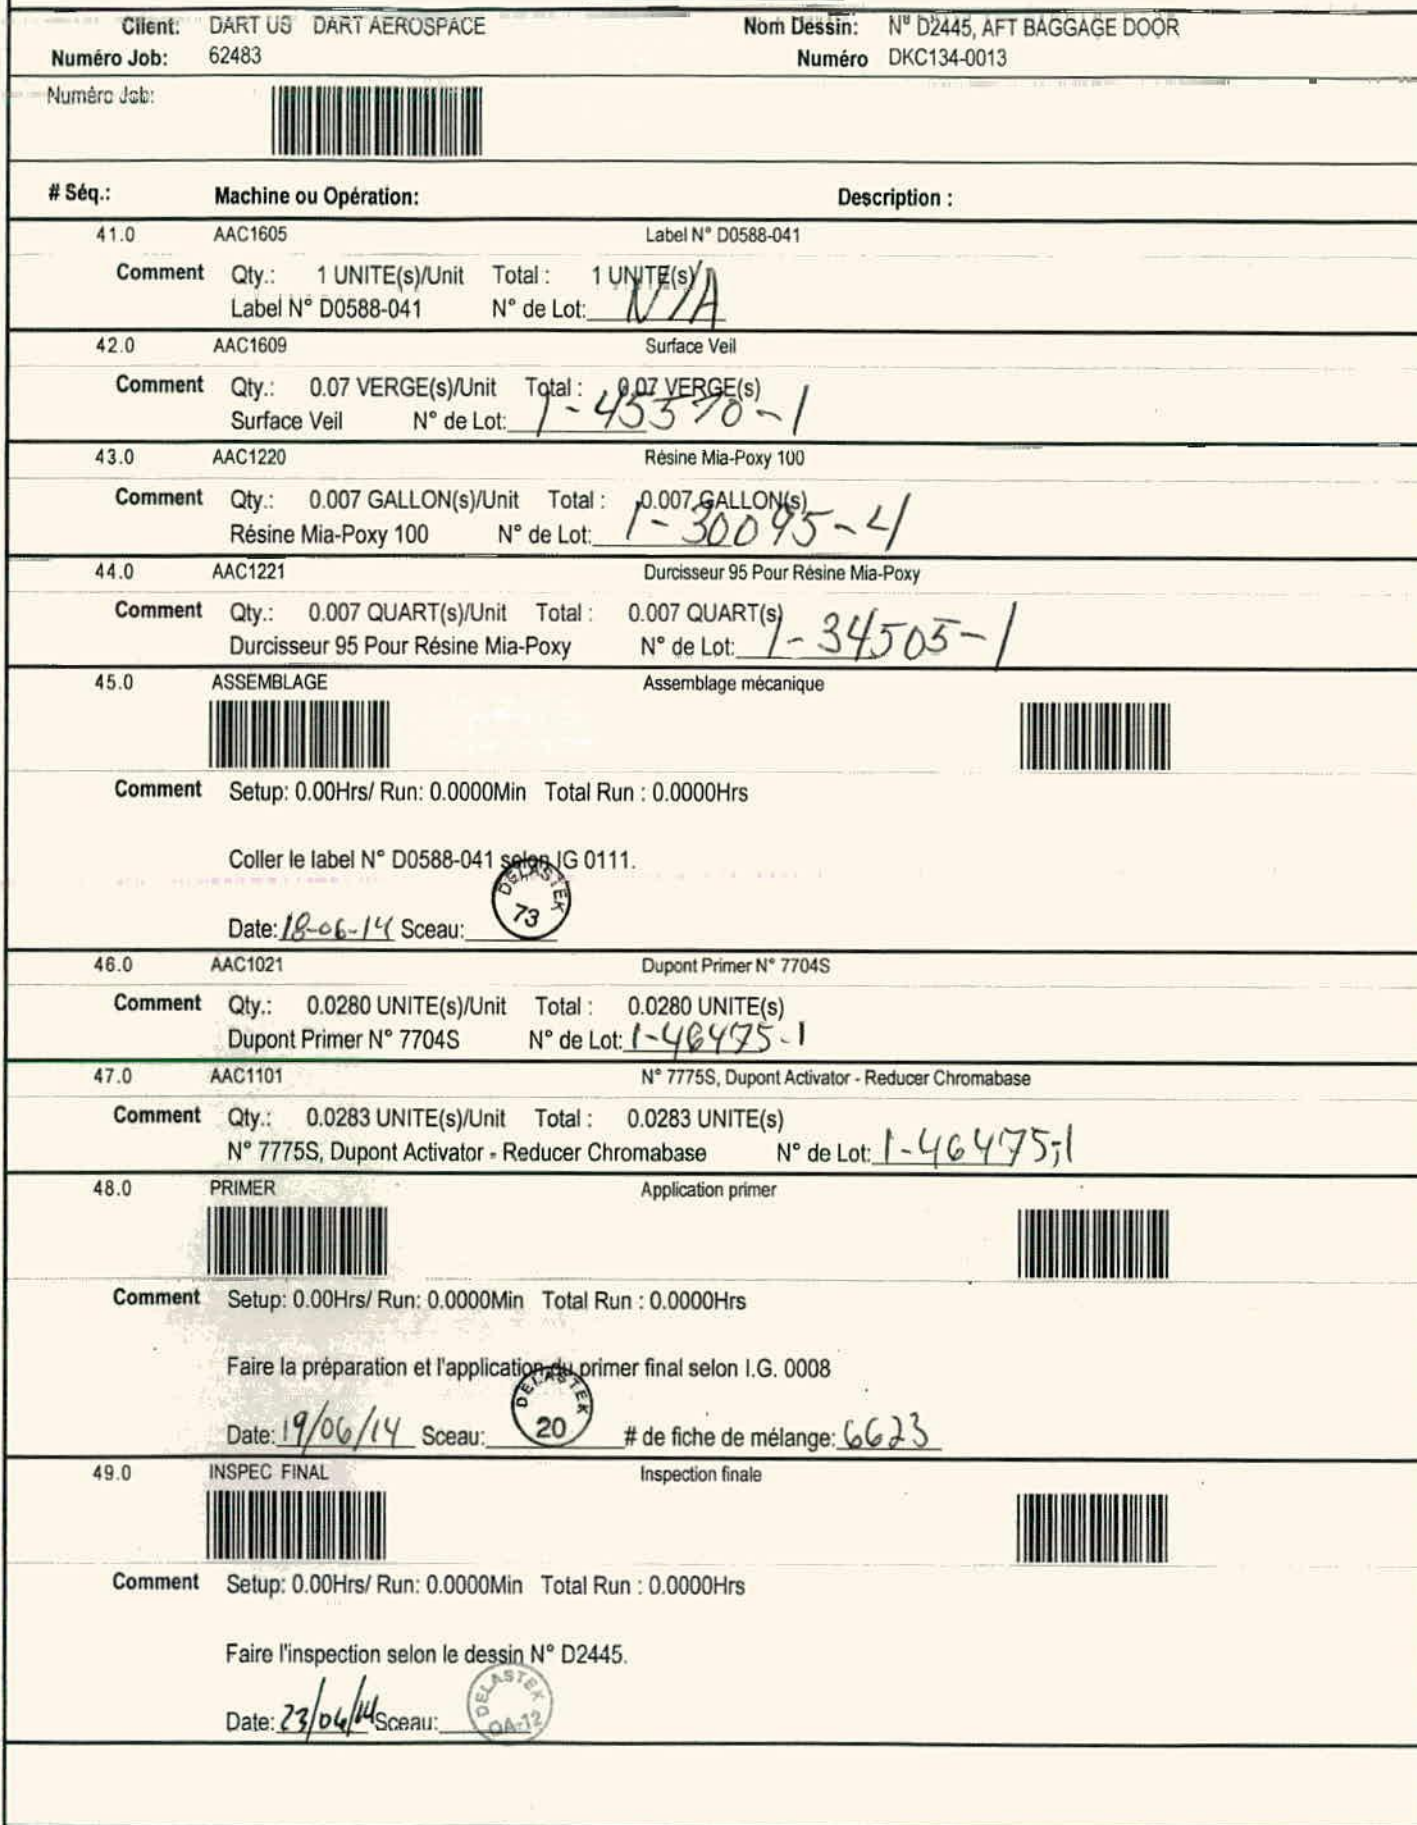 Client: DART US DART AEROSPACE Nom Dessin: N° D2445, AFT BAGGAGE DOOR
Numéro Job: 62483 Numéro DKC134-0013
Numéro Job:
# Séq.: Machine ou Opération: Description :
41.0 AAC1605 Label N° D0588-041
Comment Qty.: 1 UNITE(s)/Unit Total : 1 UNITE(s)
Label N° D0588-041 N° de Lot: N/A
42.0 AAC1609 Surface Veil
Comment Qty.: 0.07 VERGE(s)/Unit Total : 0.07 VERGE(s)
Surface Veil N° de Lot: 1-45570-1
43.0 AAC1220 Résine Mia-Poxy 100
Comment Qty.: 0.007 GALLON(s)/Unit Total : 0.007 GALLON(s)
Résine Mia-Poxy 100 N° de Lot: 1-30095-4
44.0 AAC1221 Durcisseur 95 Pour Résine Mia-Poxy
Comment Qty.: 0.007 QUART(s)/Unit Total : 0.007 QUART(s)
Durcisseur 95 Pour Résine Mia-Poxy N° de Lot: 1-34505-1
45.0 ASSEMBLAGE Assemblage mécanique
Comment Setup: 0.00Hrs/ Run: 0.0000Min Total Run : 0.0000Hrs
Coller le label N° D0588-041 selon IG 0111.
Date: 18-06-14 Sceau: DELASTEK 73
46.0 AAC1021 Dupont Primer N° 7704S
Comment Qty.: 0.0280 UNITE(s)/Unit Total : 0.0280 UNITE(s)
Dupont Primer N° 7704S N° de Lot: 1-46475-1
47.0 AAC1101 N° 7775S, Dupont Activator - Reducer Chromabase
Comment Qty.: 0.0283 UNITE(s)/Unit Total : 0.0283 UNITE(s)
N° 7775S, Dupont Activator - Reducer Chromabase N° de Lot: 1-46475-1
48.0 PRIMER Application primer
Comment Setup: 0.00Hrs/ Run: 0.0000Min Total Run : 0.0000Hrs
Faire la préparation et l'application du primer final selon I.G. 0008
Date: 19/06/14 Sceau: DELASTEK 20 # de fiche de mélange: 6623
49.0 INSPEC FINAL Inspection finale
Comment Setup: 0.00Hrs/ Run: 0.0000Min Total Run : 0.0000Hrs
Faire l'inspection selon le dessin N° D2445.
Date: 23/06/14 Sceau: DELASTEK QA-12